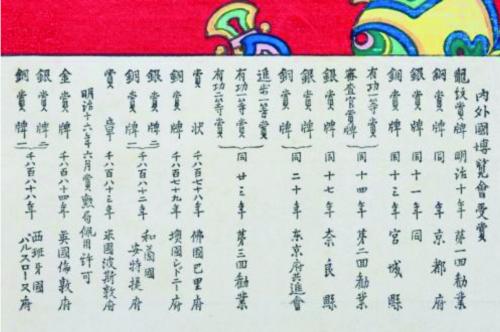 内外國博覧會受賞
龍紋賞牌 明治十年 第一回勧業
銅賞牌 同年 京都府
銀賞牌 同十一年 同
銅賞牌 同十三年 宮城縣
有功二等賞 同十四年 第二回勧業
審査官賞牌
銀賞牌 同十七年 奈良縣
銅賞牌 同二十年 东京府共進會
進歩一等賞
有功一等賞 同廿三年 第三回勧業
有功六等賞
賞状 千八百七十八年 佛國巴里府
銅賞牌 千八百七十九年 墺國シドニー府
銀賞牌二 和蘭國
銅賞牌一 千八百八十二年 安特堤府
賞章 千八百八十三年 米國波斯敦府
明治十六年六月賞勲局佩用許可
金賞牌 千八百八十四年 英國倫敦府
銀賞牌二 西班牙國
銅賞牌一 千八百八十八年 バルスロース府